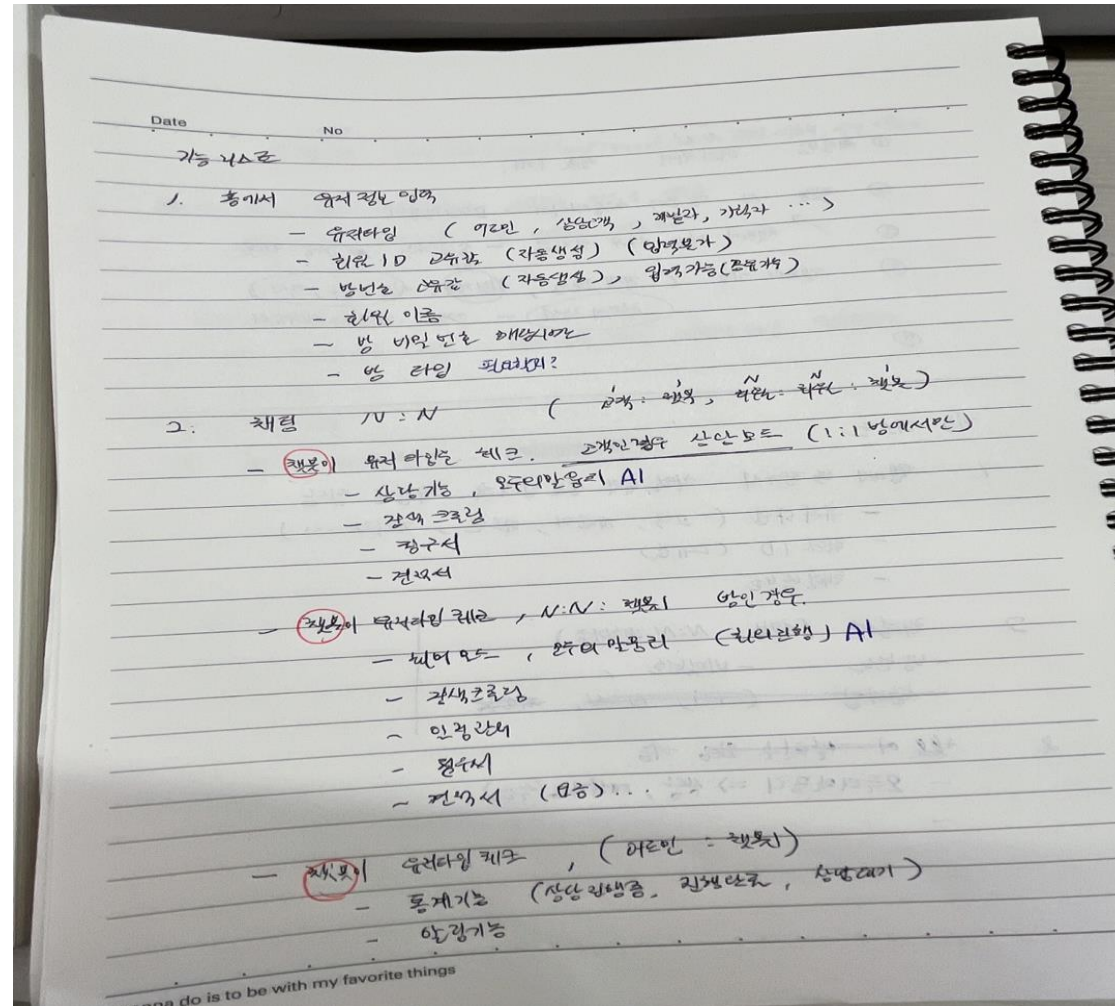 Date No
기능 리스트
1. 홈에서 유저 정보 입력
- 유저타입 (어드민, 상담고객, 개발자, 기획자 ...)
- 회원 ID 고유값 (자동생성) (입력불가)
- 방번호 고유값 (자동생성), 입력가능(공유가능)
- 회원 이름
- 방 비밀번호
- 방 타입 필요할지?
2. 채팅 N:N (고객:챗봇, 회원:회원:챗봇)
- 챗봇이 유저 타입을 체크. 고객인경우 상담모드 (1:1 방에서만)
- 상담기능, AI
- 검색 크롤링
- 청구서
- 견적서
- 챗봇이 유저타입 체크, N:N:챗봇1 방인경우.
- 회의 모드, (회의진행) AI
- 검색크롤링
- 일정관리
- 견적서 ...
- 챗봇이 유저타입 체크, (어드민 : 챗봇1)
- 통계기능 (상담진행중, 진행완료, 상담대기)
- 알림기능
do is to be with my favorite things